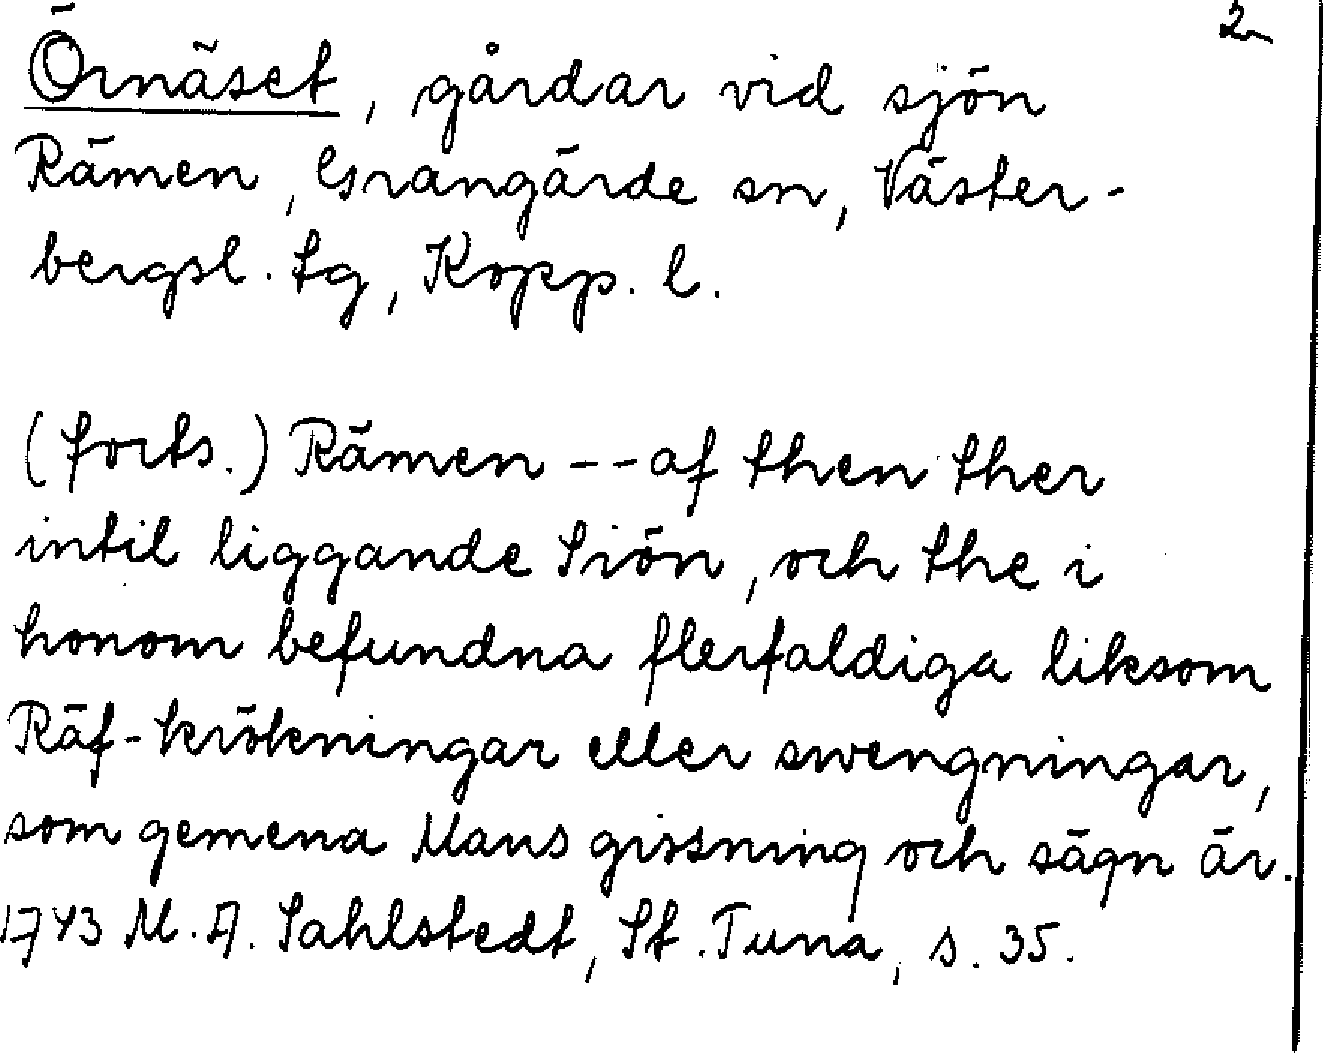 2
Örnäset, gårdar vid sjön
Rämen, Grangärde sn, Väster-
bergsl. tg, Kopp. l.
(forts.) Rämen -- af then ther
intil liggande Siön, och the i
honom befundna flerfaldiga liksom
Räf-krökningar eller swengningar,
som gemena Mans gissning och sägn är.
1743 M. A. Sahlstedt, St. Tuna, s. 35.